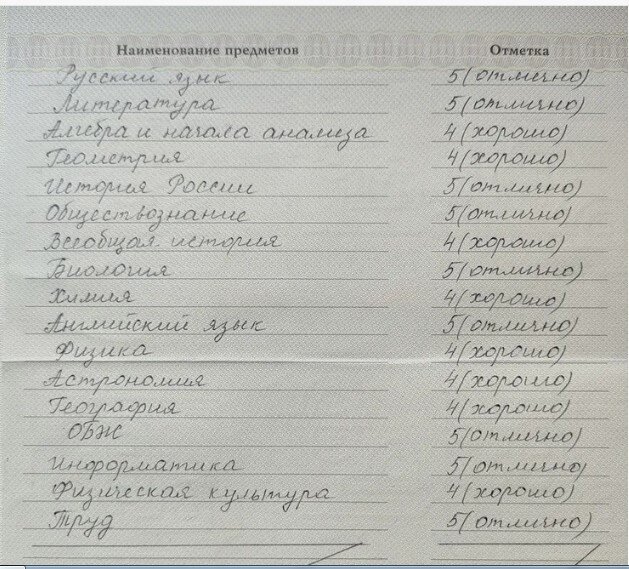 Наименование предметов Отметка
Русский язык 5(отлично)
Литература 5(отлично)
Алгебра и начала анализа 4(хорошо)
Геометрия 4(хорошо)
История России 5(отлично)
Обществознание 5(отлично)
Всеобщая история 4(хорошо)
Биология 5(отлично)
Химия 4(хорошо)
Английский язык 5(отлично)
Физика 4(хорошо)
Астрономия 4(хорошо)
География 4(хорошо)
ОБЖ 5(отлично)
Информатика 5(отлично)
Физическая культура 4(хорошо)
Труд 5(отлично)